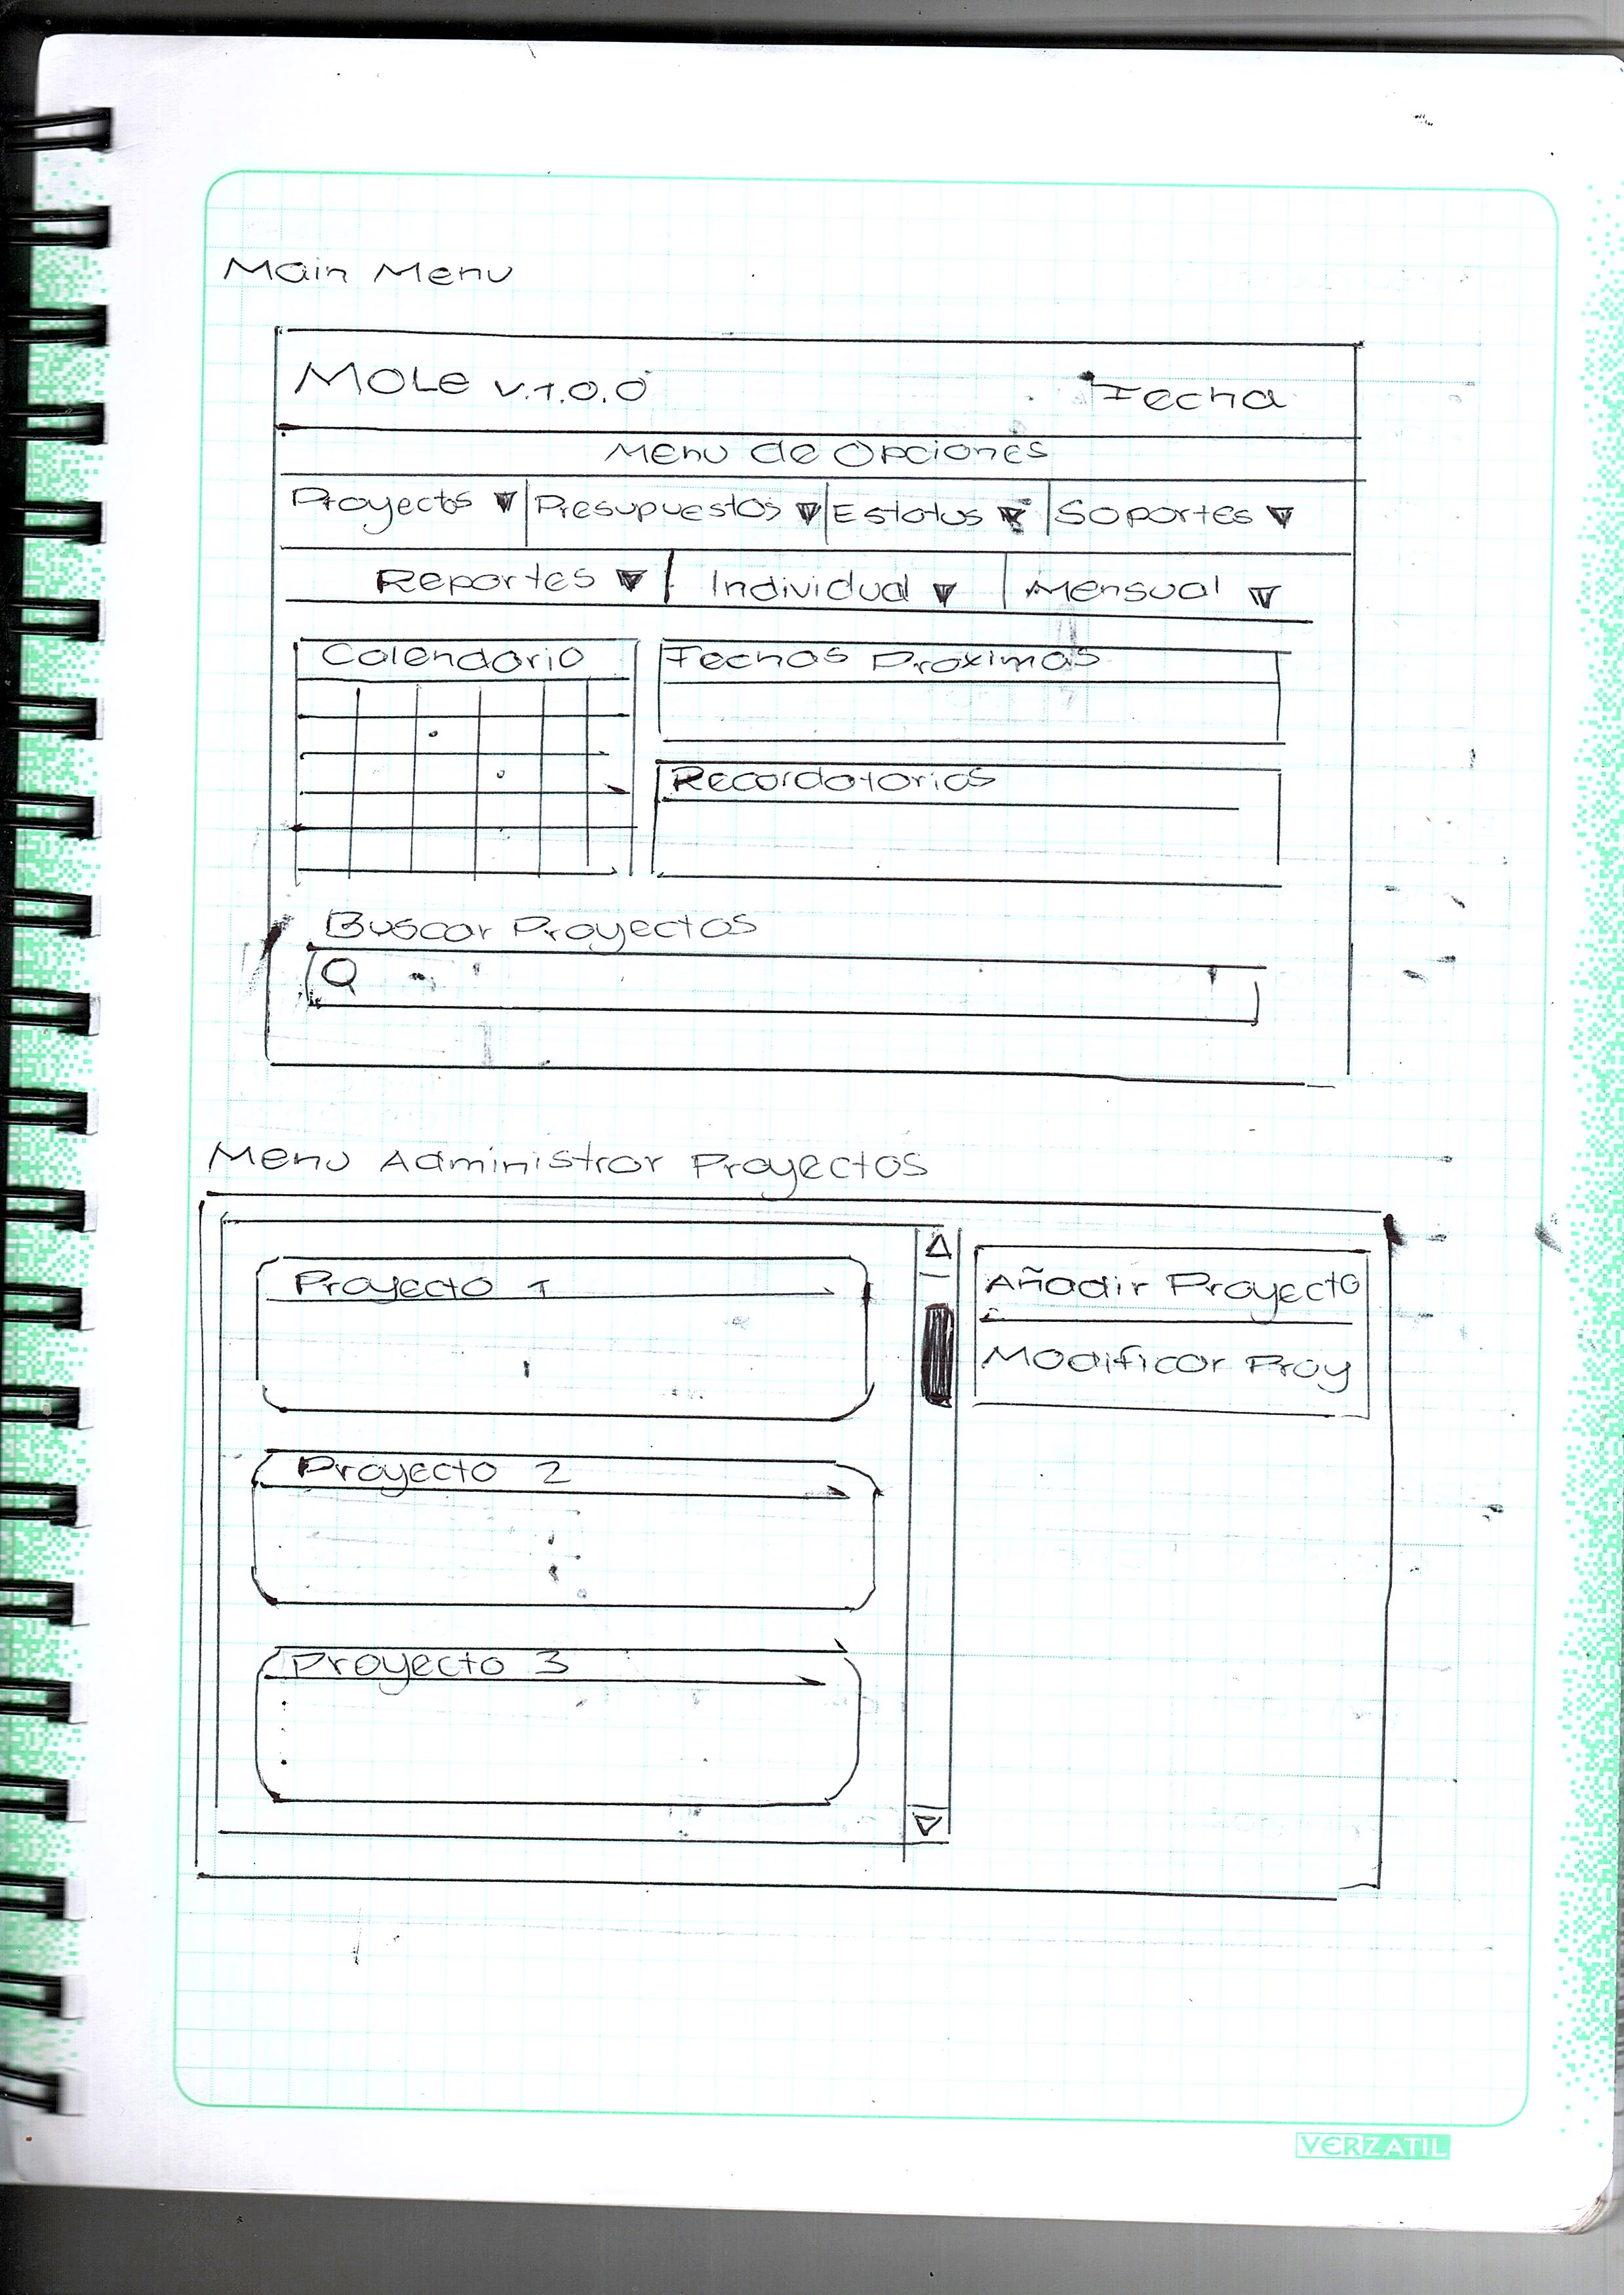 Main Menu
MOLE v.1.0.0 Fecha
Menu de Opciones
Proyectos Presupuestos Estatus Soportes
Reportes Individual Mensual
Calendario
Fechas Proximas
Recordatorios
Buscar Proyectos
Menu Administrar Proyectos
Proyecto 1
Añadir Proyecto
Modificar Proy
Proyecto 2
Proyecto 3
VERZATIL